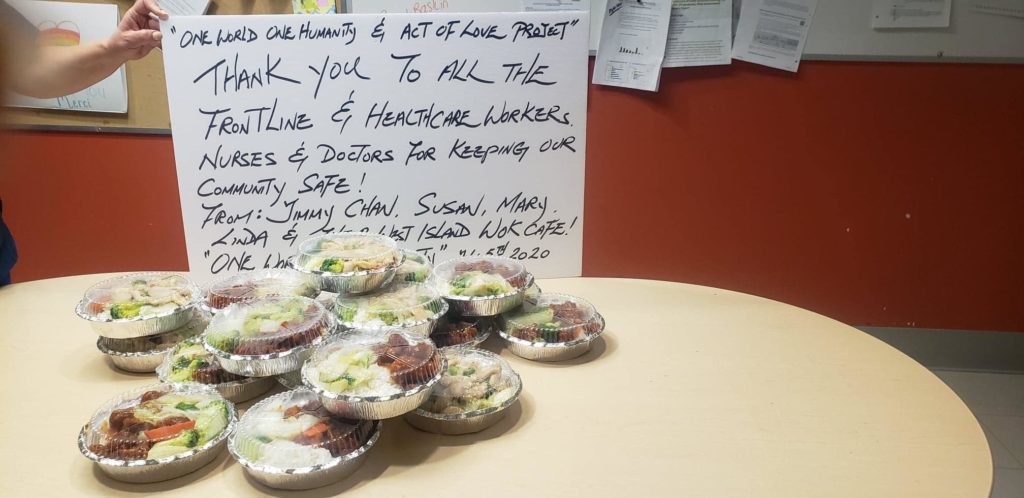 "ONE WORLD ONE HUMANITY & ACT OF LOVE PROJECT"
THANK YOU TO ALL THE
FRONTLINE & HEALTHCARE WORKERS.
NURSES & DOCTORS FOR KEEPING OUR
COMMUNITY SAFE!
FROM: JIMMY CHAN. SUSAN, MARY.
LINDA & WEST ISLAND WOK CAFE!
"ONE 5th 2020
Merci